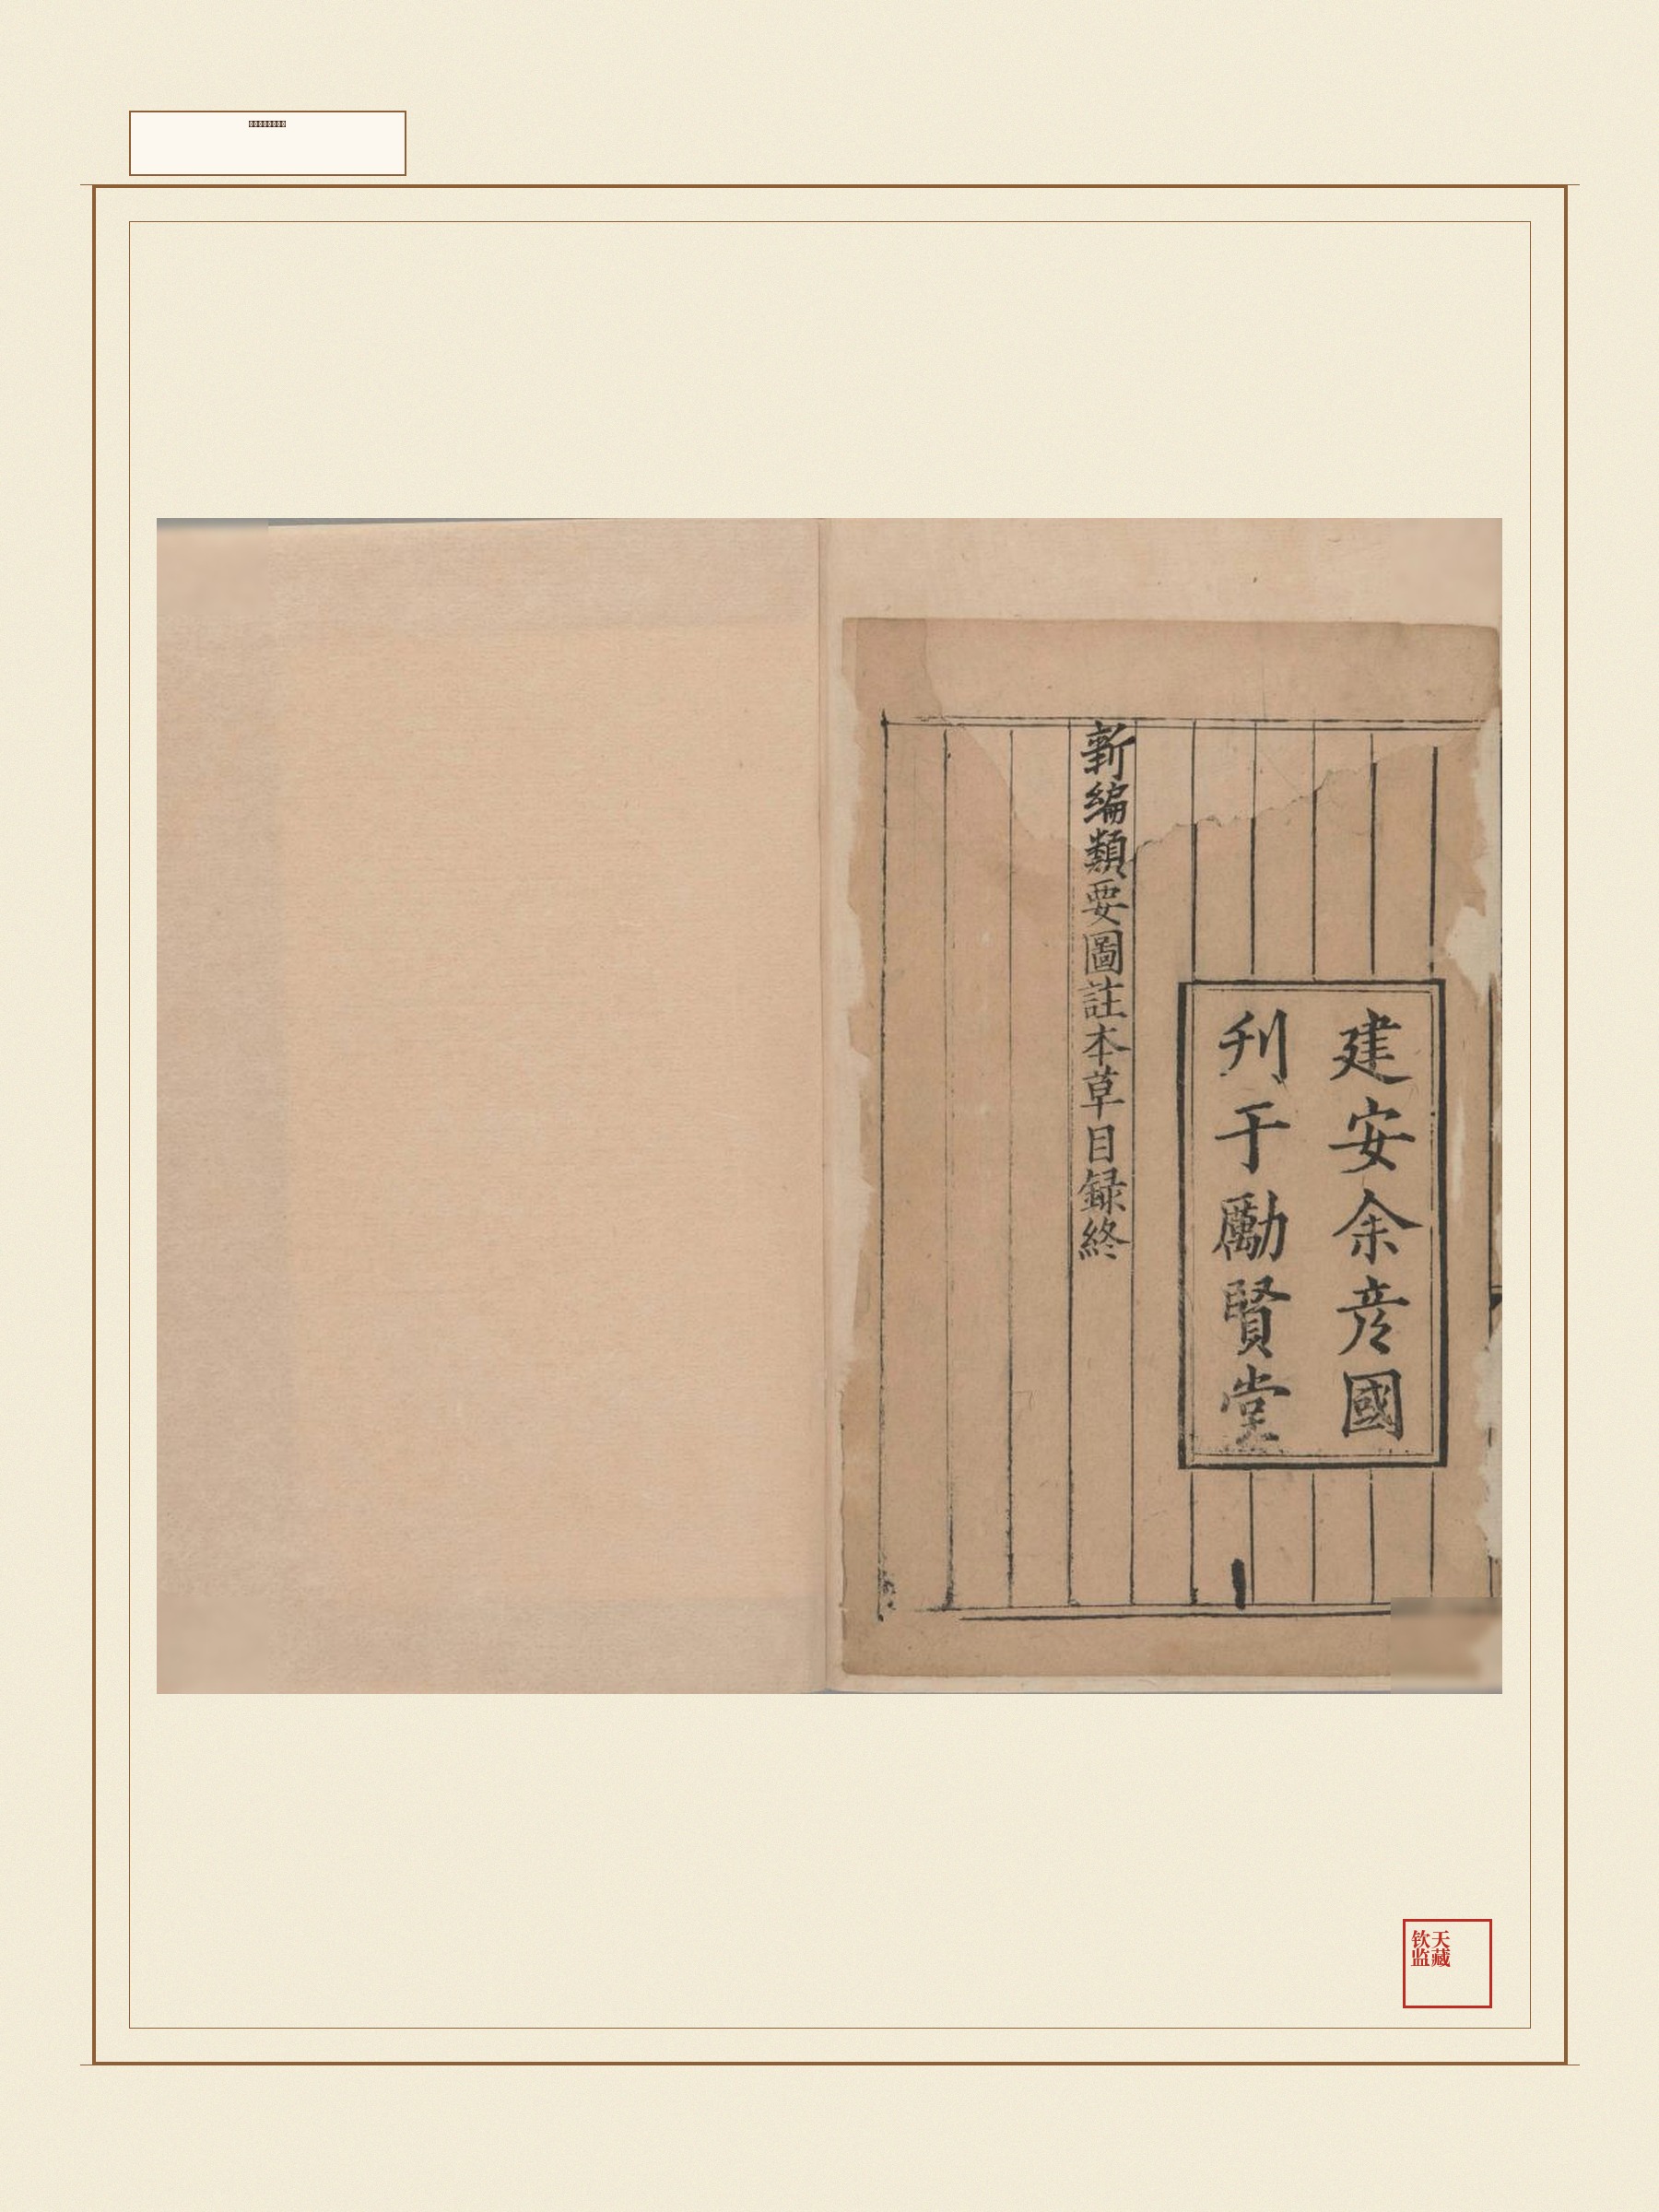 建安余彦國
刋于勵賢堂
新編類要圖註本草目録終
钦天
监藏